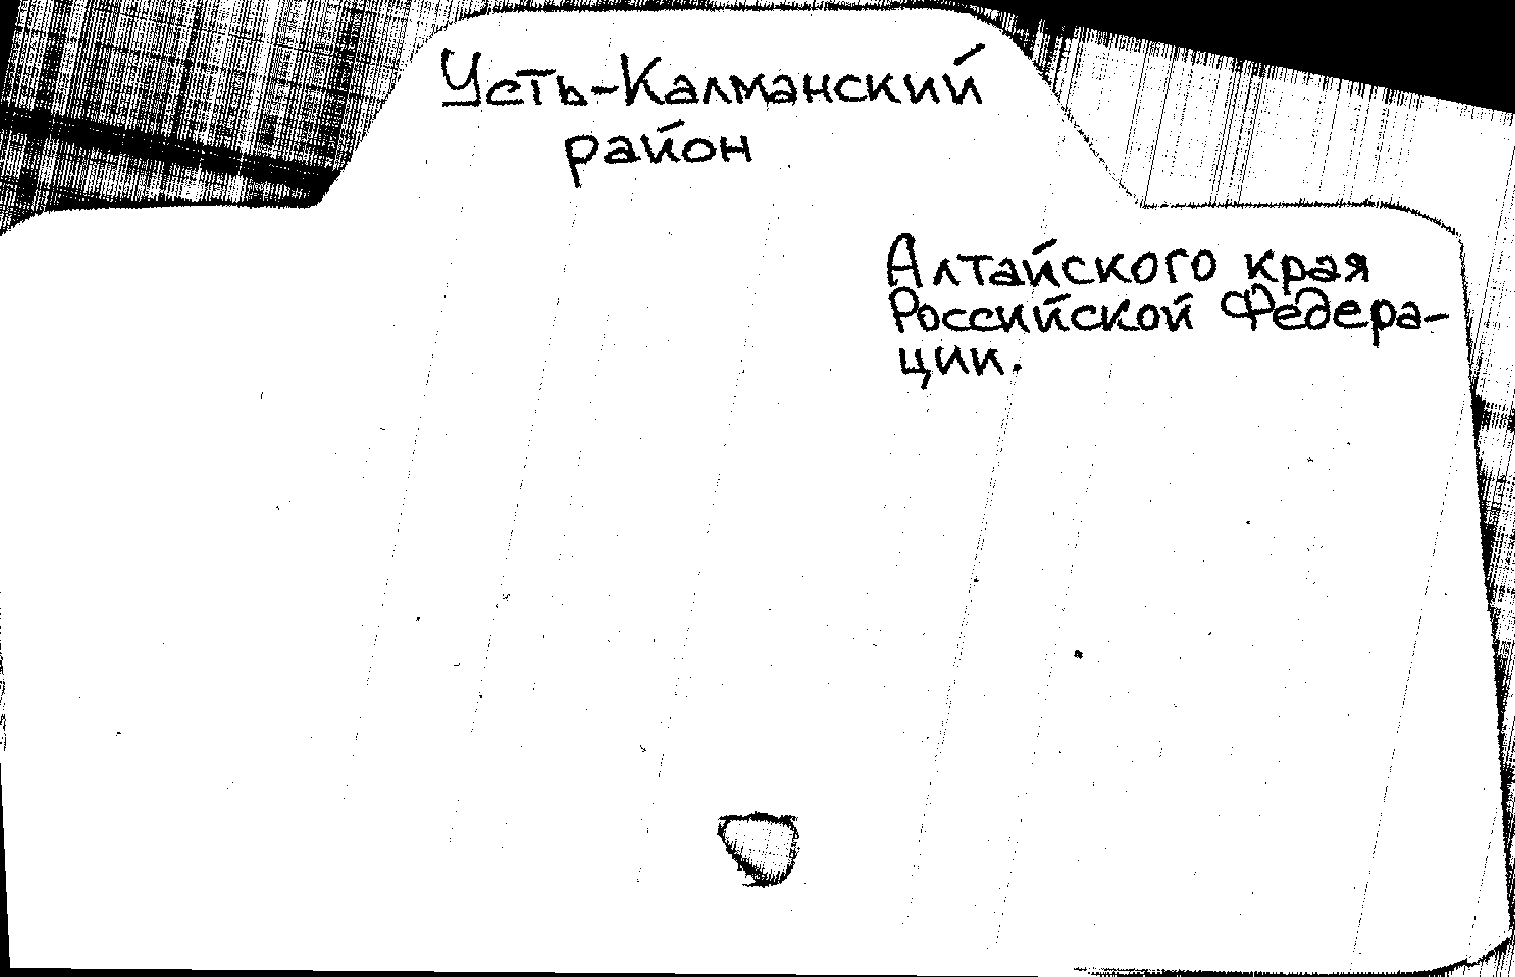 Усть-Калманский
район
Алтайского края
Российской Федера-
ции.